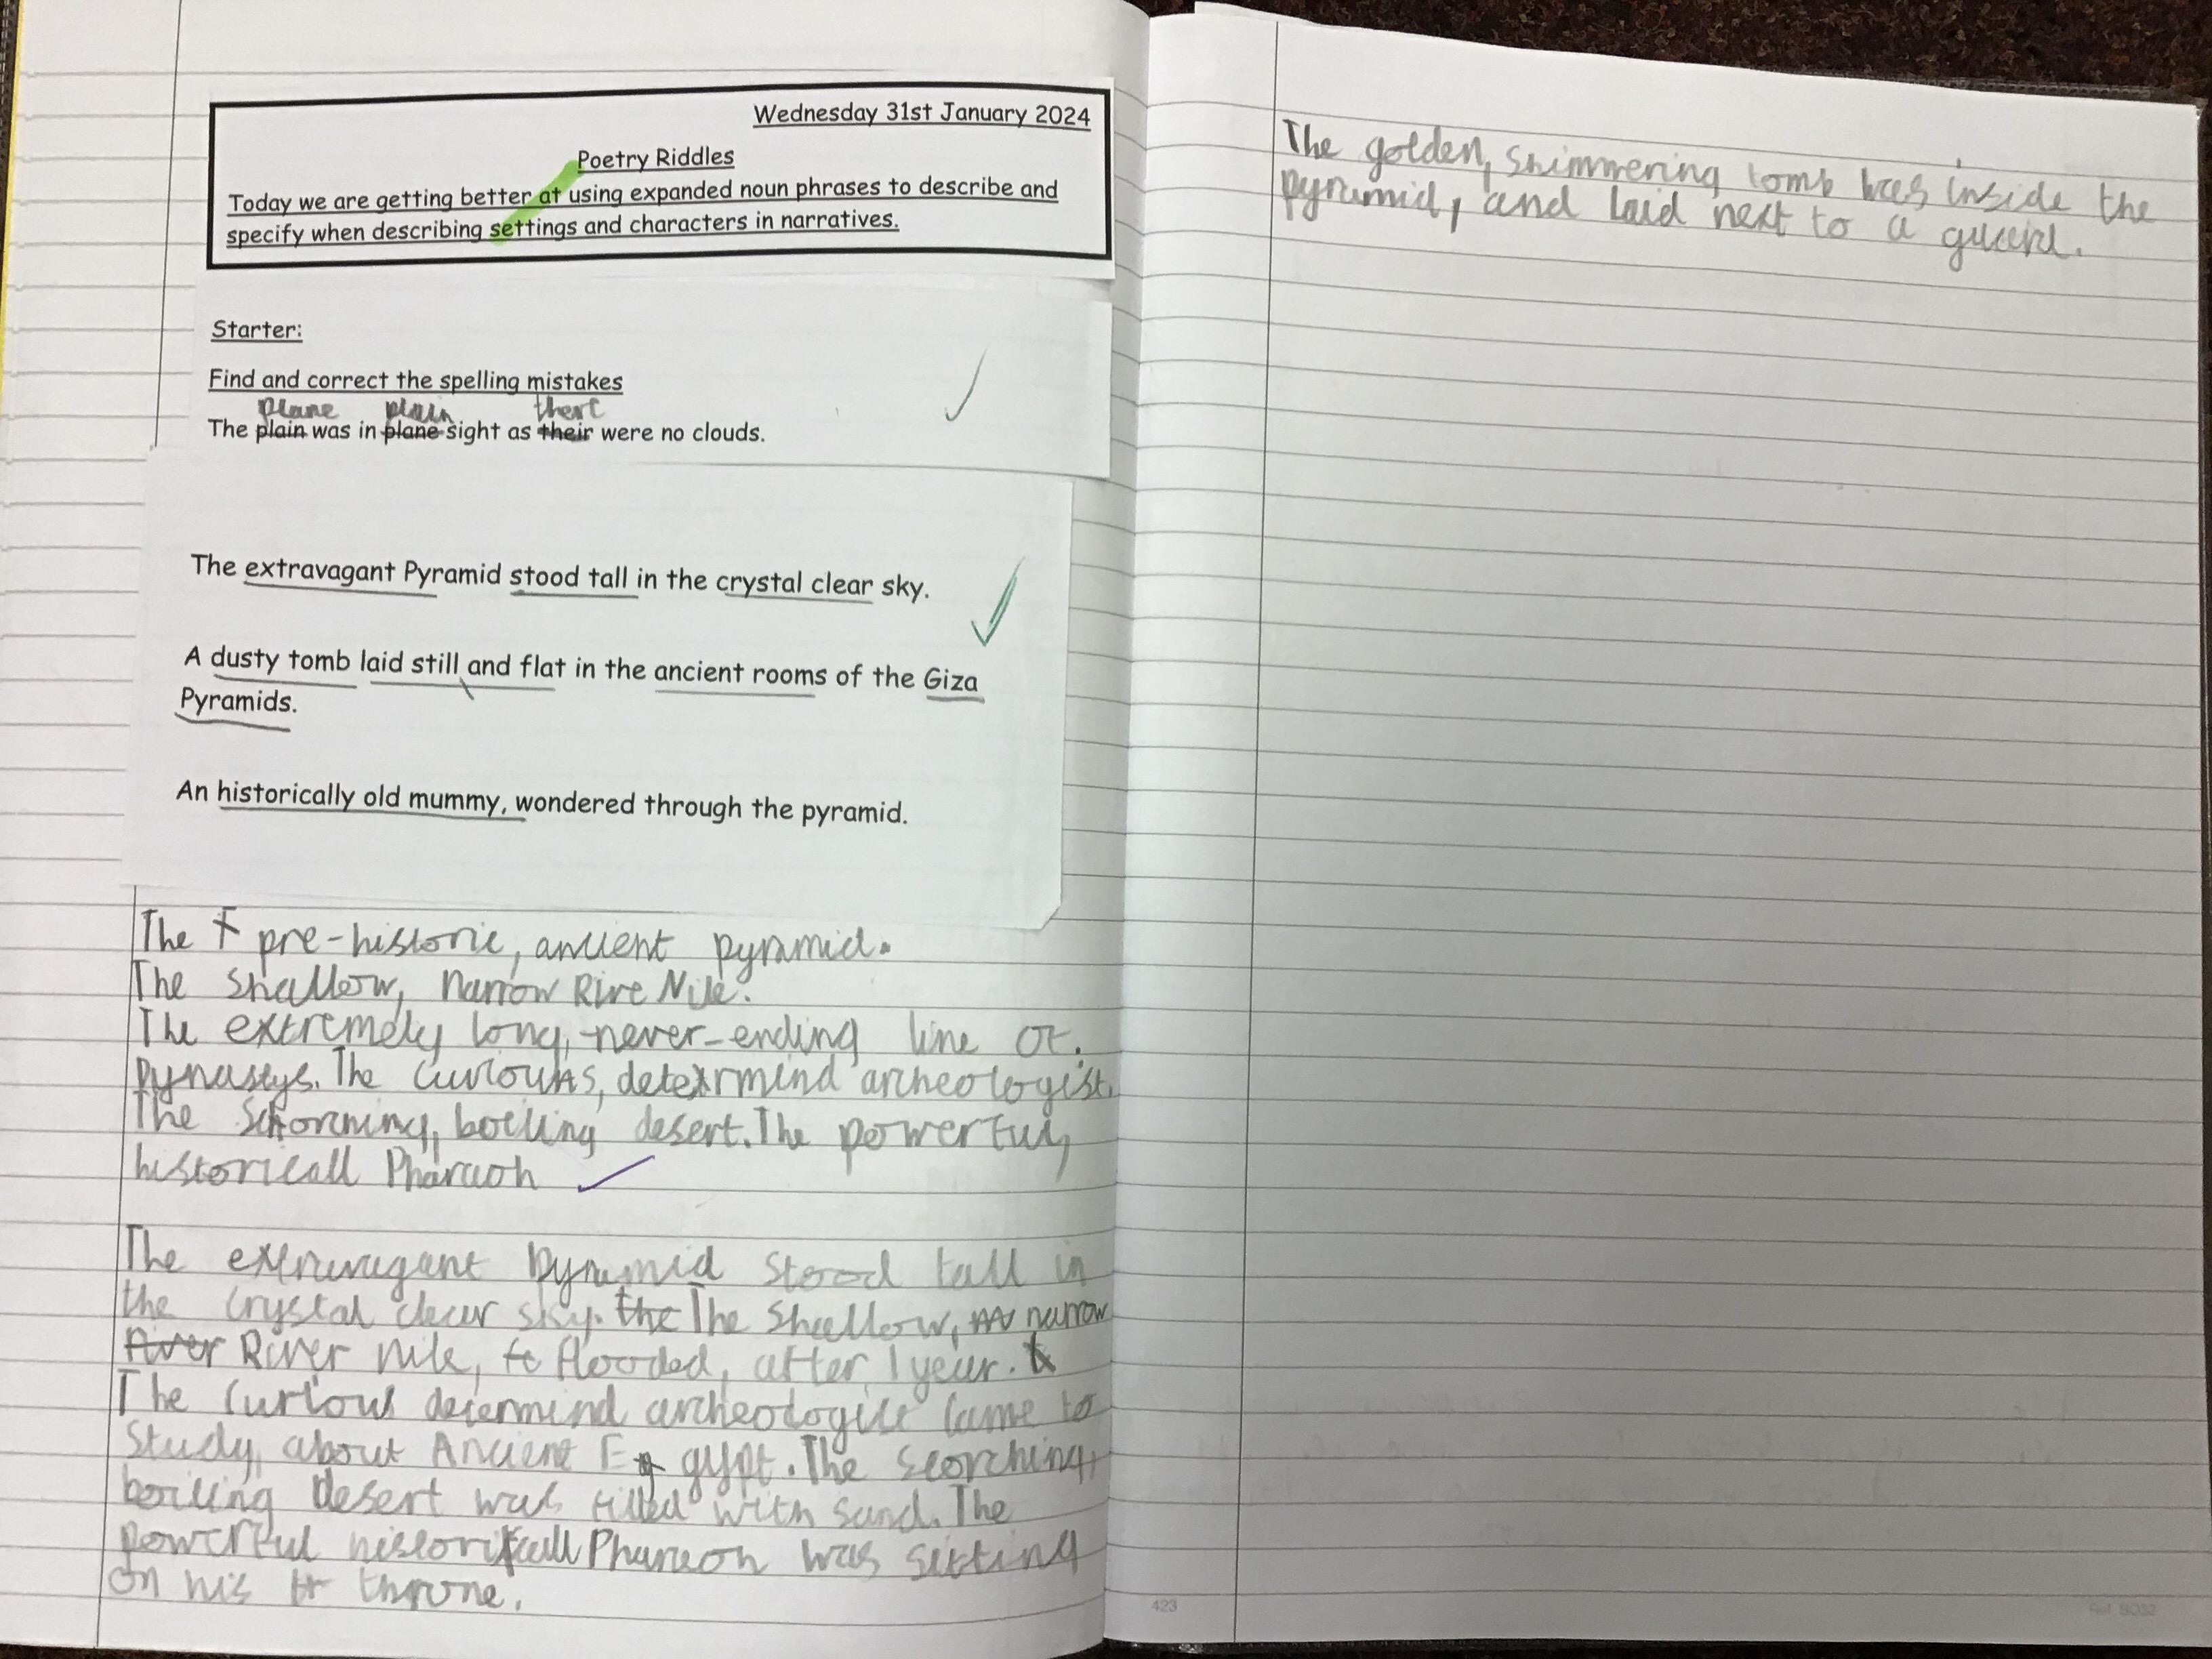 Wednesday 31st January 2024
Poetry Riddles
Today we are getting better at using expanded noun phrases to describe and
specify when describing settings and characters in narratives.
Starter:
Find and correct the spelling mistakes
plane plain there
The plain was in plane sight as their were no clouds.
The extravagant Pyramid stood tall in the crystal clear sky.
A dusty tomb laid still and flat in the ancient rooms of the Giza
Pyramids.
An historically old mummy, wondered through the pyramid.
The pre-historic, ancient pyramid.
The shallow, narrow Rive Nile.
The extremely long, never-ending line of.
Dynastys. The curious, determind archeologist.
The schorning, boiling desert. The powerful,
historicall Pharaoh
The extravagant pyramid stood tall in
the crystal clear sky. the The shallow, narrow
River River nile, flooded, after 1 year.
The curious determind archeologist came to
study, about Ancient Egypt. The scorching,
boiling desert was filled with sand. The
powerful historicall Pharaoh was sitting
on his throne.
The golden, shimmering tomb was inside the
pyramid, and laid next to a guard.
423